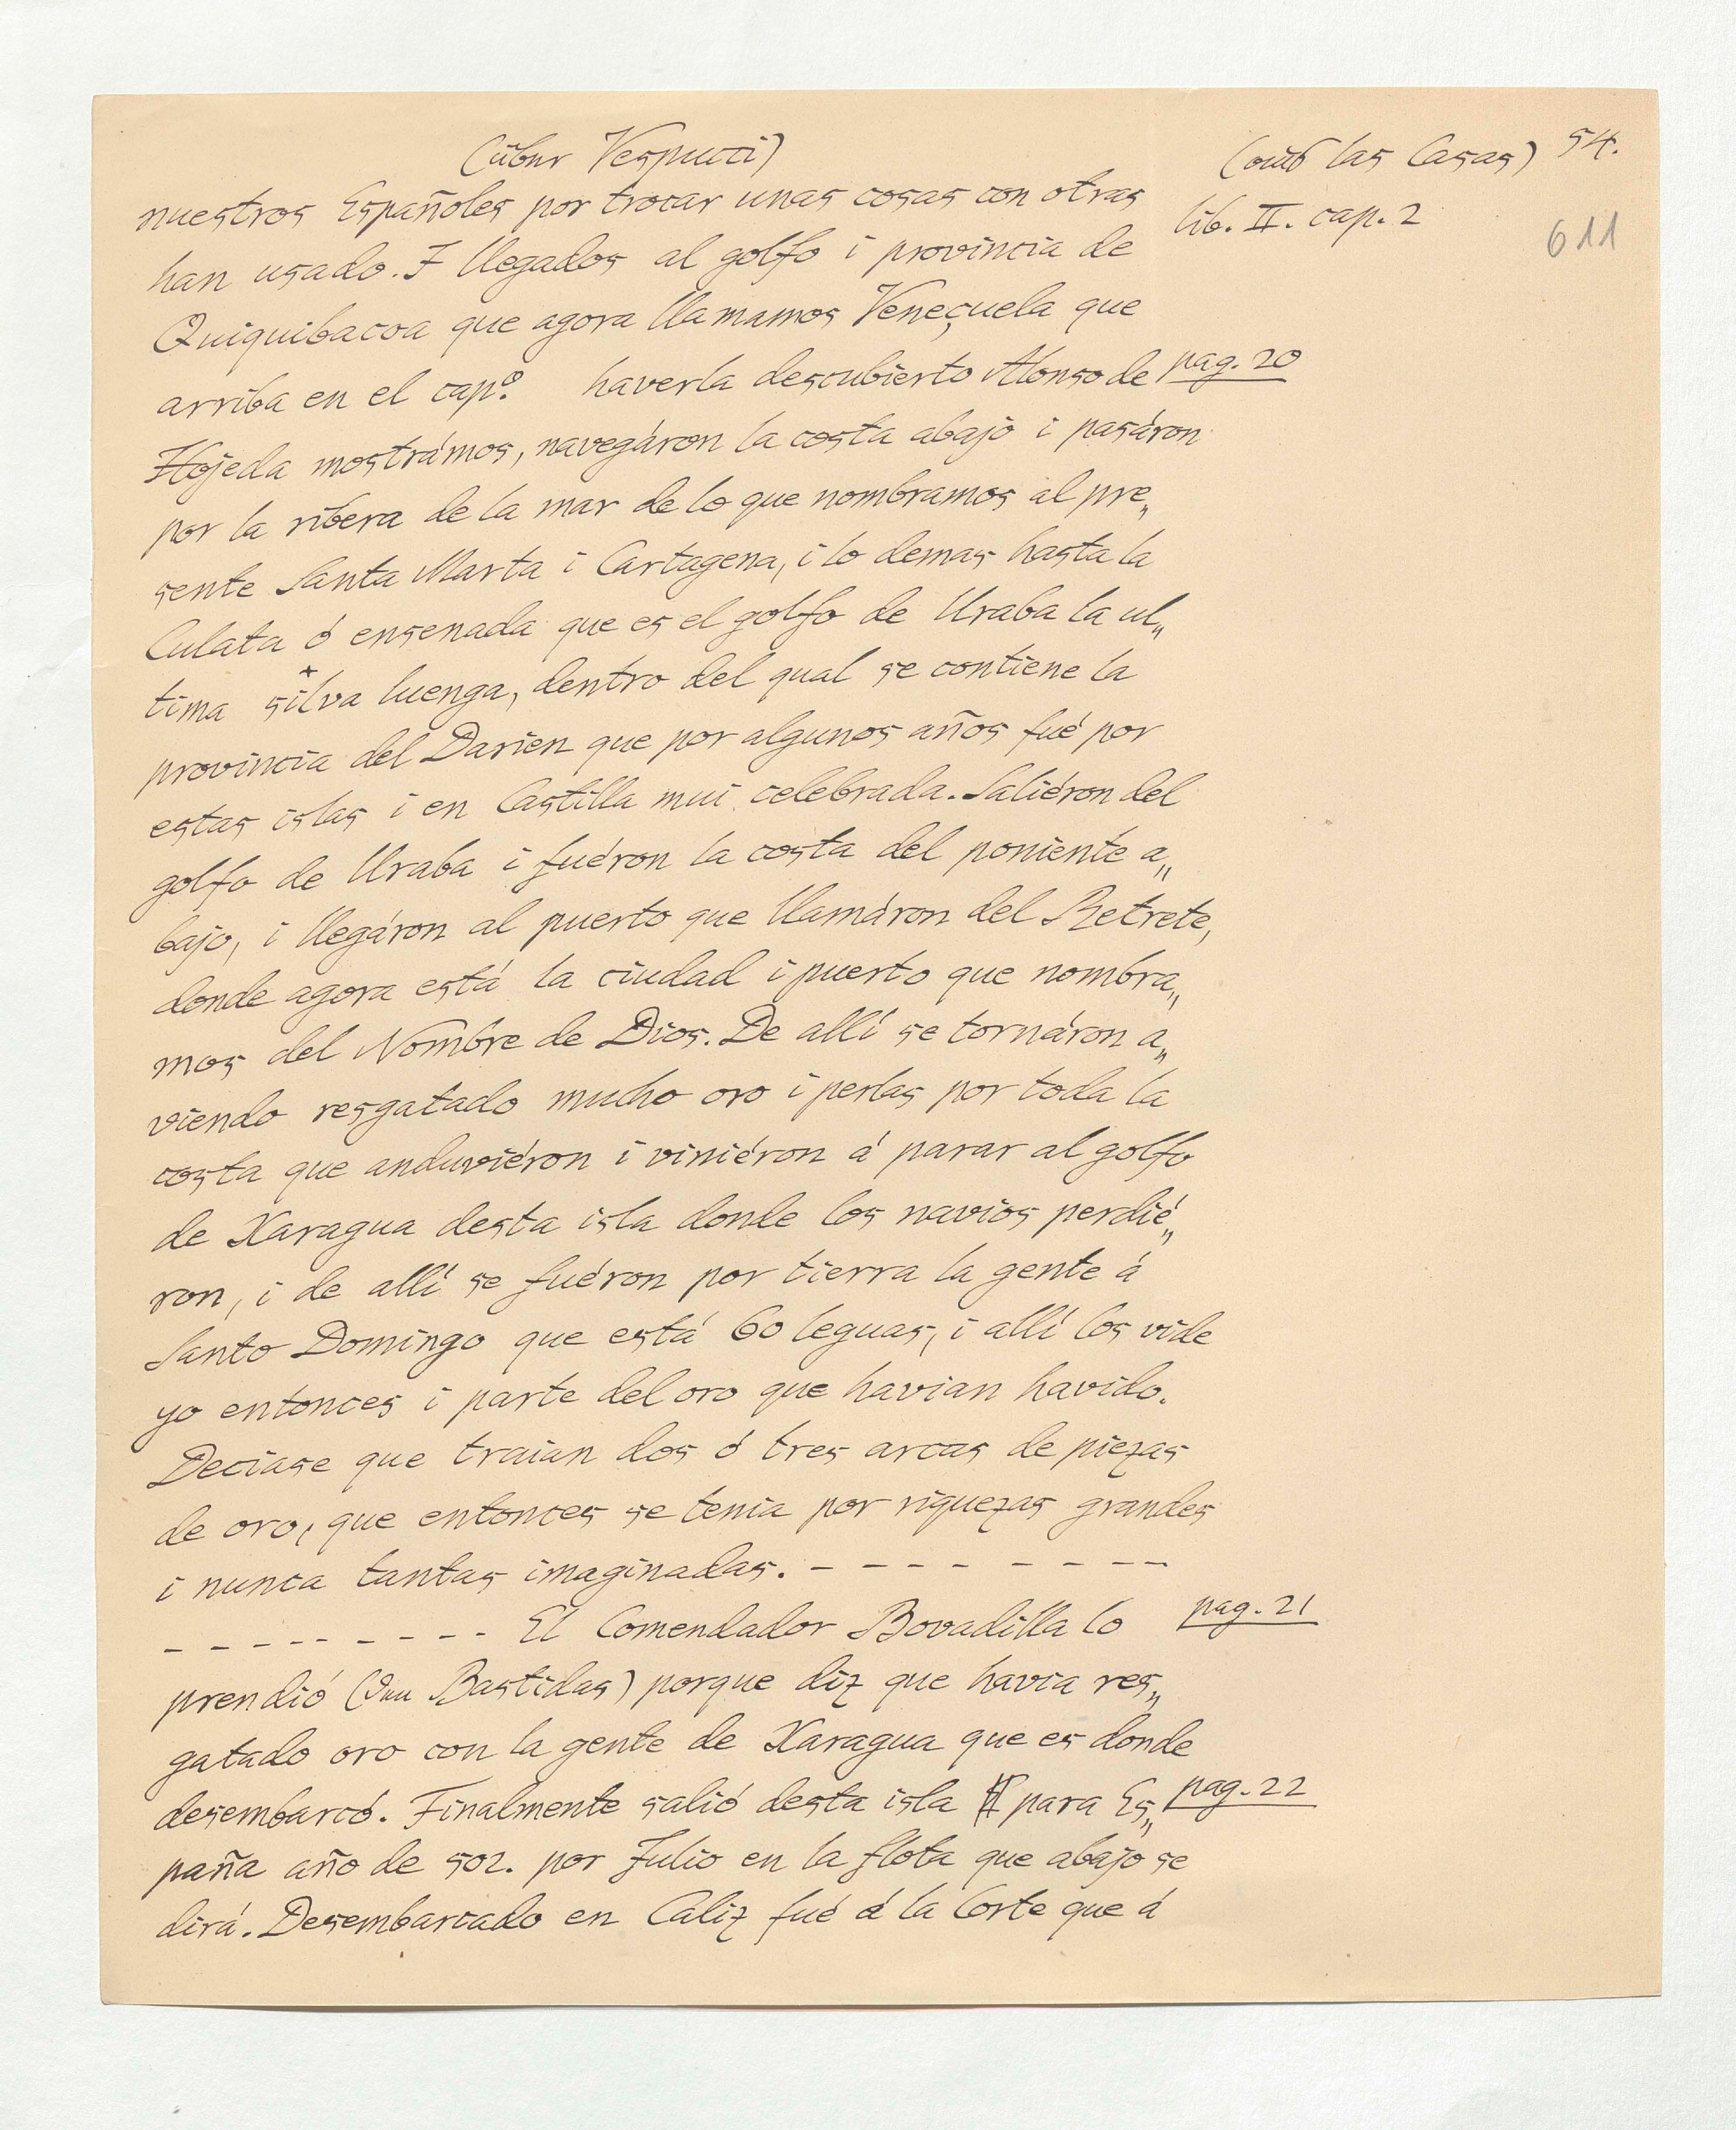 (über Vespucci)
(aus las Casas) 54.
lib. II. cap. 2
611
nuestros Españoles por trocar unas cosas con otras
han usado. I llegados al golfo i provincia de
Quiquibacoa que agora llamamos Veneçuela que
arriba en el cap.º haverla descubierto Alonso de pag. 20
Hojeda mostrámos, navegáron la costa abajo i pasáron
por la ribera de la mar de lo que nombramos al pre„
sente Santa Marta i Cartagena, i lo demas hasta la
Culata ó ensenada que es el golfo de Uraba la ul„
tima silva luenga, dentro del qual se contiene la
provincia del Darien que por algunos años fué por
estas islas i en Castilla mui celebrada. Saliéron del
golfo de Uraba i fuéron la costa del poniente a„
bajo, i llegáron al puerto que llamáron del Retrete,
donde agora está la ciudad i puerto que nombra„
mos del Nombre de Dios. De allí se tornáron a„
viendo resgatado mucho oro i perlas por toda la
costa que anduviéron i viniéron á parar al golfo
de Xaragua desta isla donde los navios perdié„
ron, i de allí se fuéron por tierra la gente á
Santo Domingo que está 60 leguas, i allí los vide
yo entonces i parte del oro que havian havido.
Deciase que traian dos ó tres arcas de piezas
de oro, que entonces se tenia por riquezas grandes
i nunca tantas imaginadas. - - - - - - - -
- - - - - - - - - El Comendador Bovadilla lo pag. 21
prendió (den Bastidas) porque diz que havia res„
gatado oro con la gente de Xaragua que es donde
desembarcó. Finalmente salió desta isla para Es„ pag. 22
paña año de 502. por Julio en la flota que abajo se
dirá. Desembarcado en Caliz fué á la Corte que á